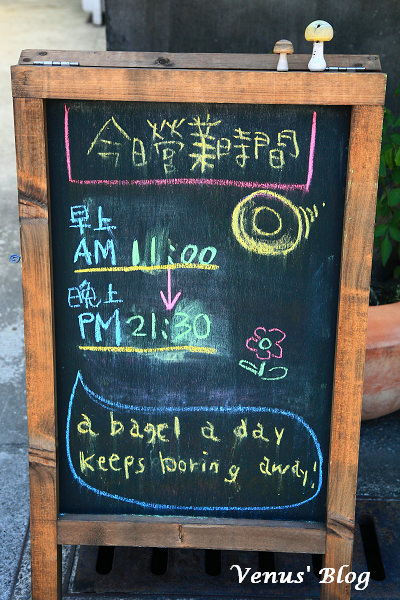 今日營業時間
早上
AM 11:00
晚上
PM 21:30
a bagel a day
keeps boring away!
Venus' Blog